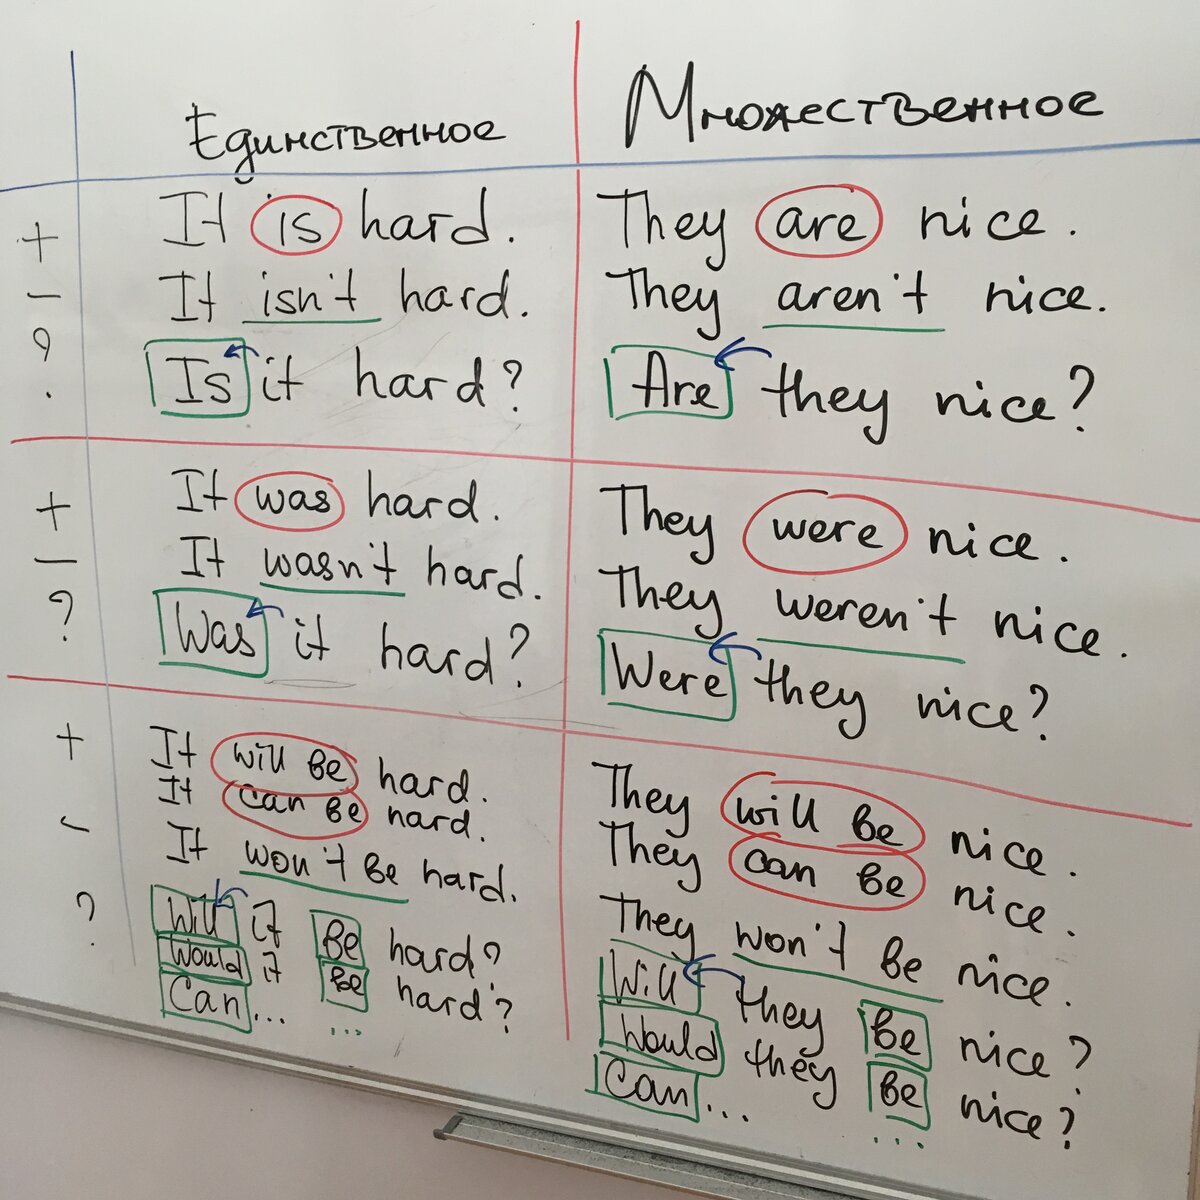 Единственное
Множественное
+ It is hard.
They are nice.
- It isn't hard.
They aren't nice.
? Is it hard?
Are they nice?
+ It was hard.
They were nice.
- It wasn't hard.
They weren't nice.
? Was it hard?
Were they nice?
+ It will be hard.
It can be hard.
They will be nice.
They can be nice.
- It won't be hard.
They won't be nice.
? Will it be hard?
Would it be hard?
Can... ...
Will they be nice?
Would they be nice?
Can... ...